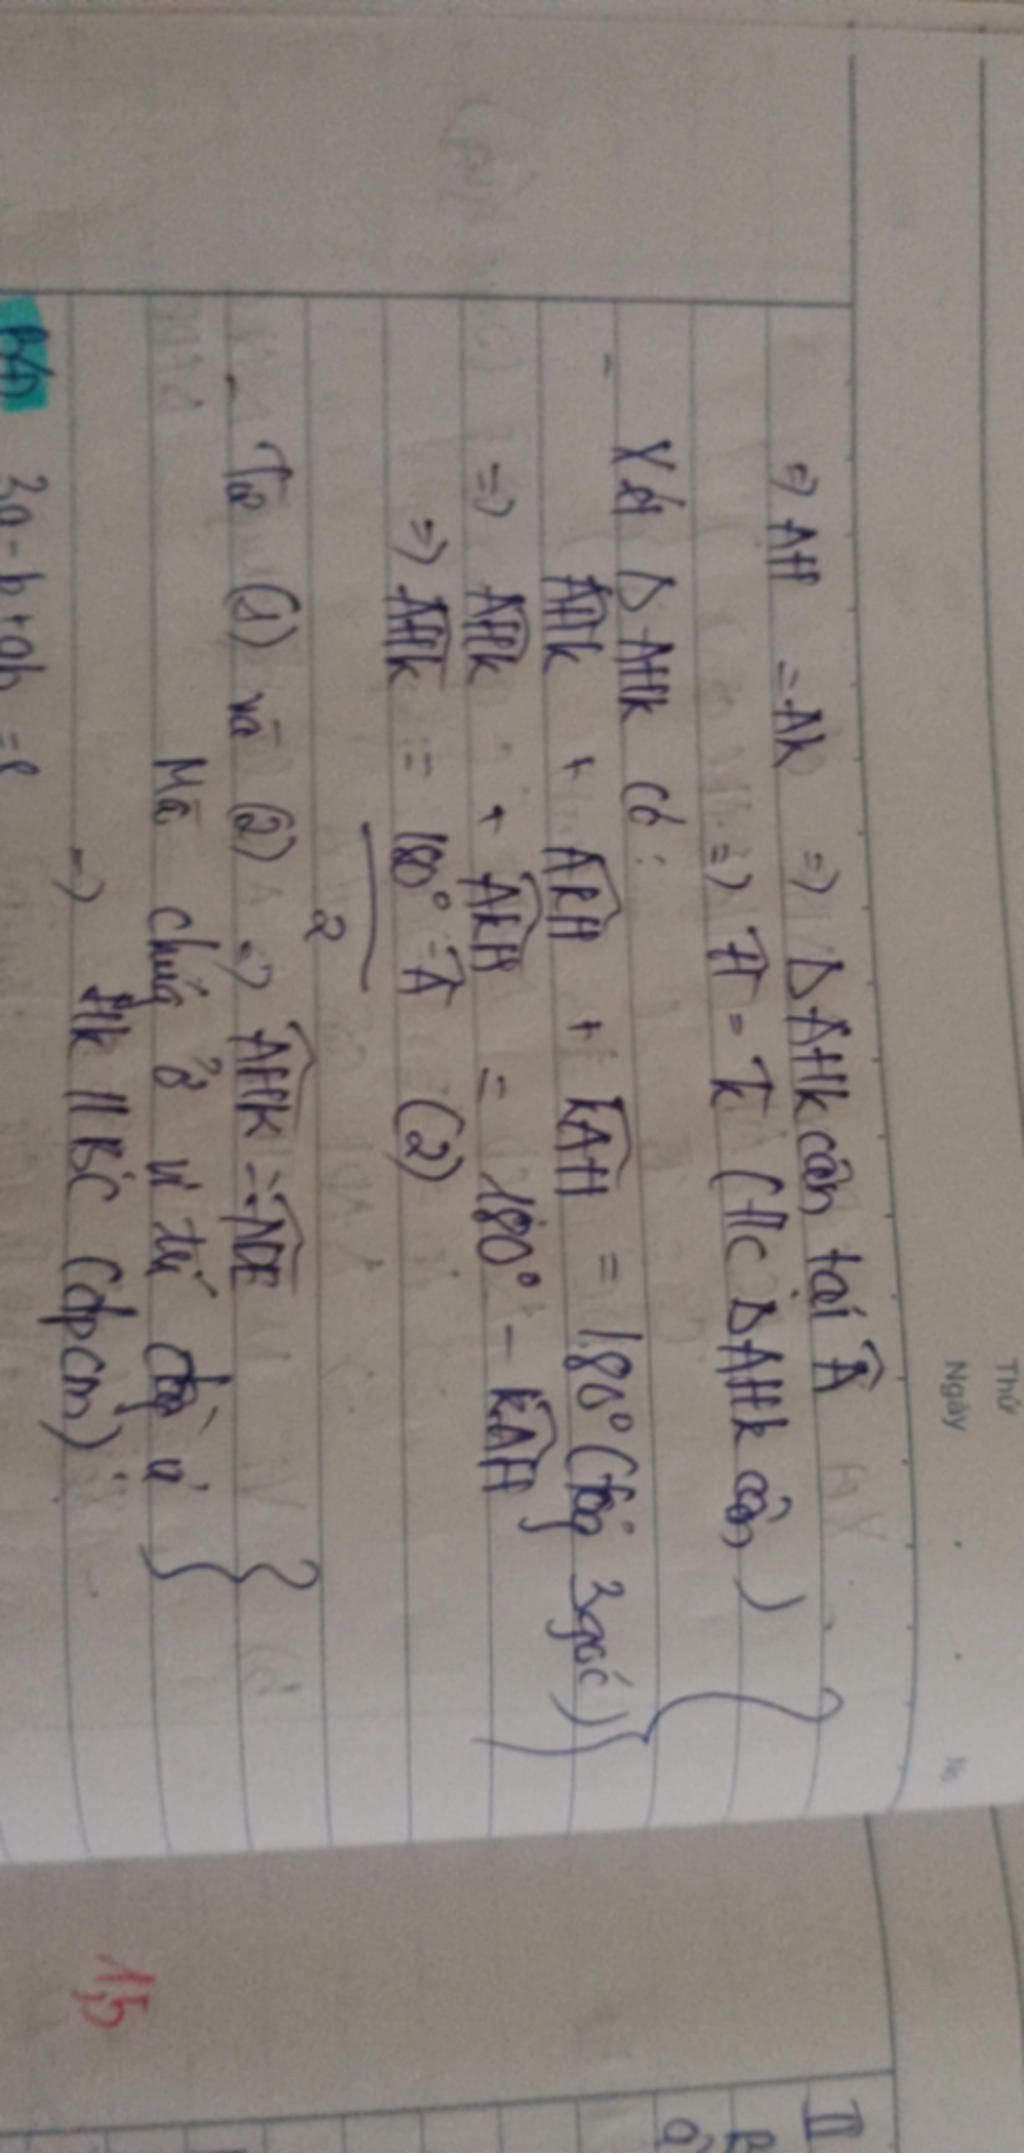 Thứ
Ngày
No
=> AH = AK => Δ AHK cân tại Â
=> Ĥ = K̂ (t/c Δ AHK cân)
- Xét Δ AHK có:
AHK + AKH + KAH = 180° (tổng 3 góc)
=> AHK + AKH = 180° - KAH
=> AHK = 180° - Â (2)
2
- Từ (1) và (2) => AHK = ADE
Mà chúng ở vị trí đồng vị
=> HK // BC (đpcm)
3a - b + ab = 8
1,5
II